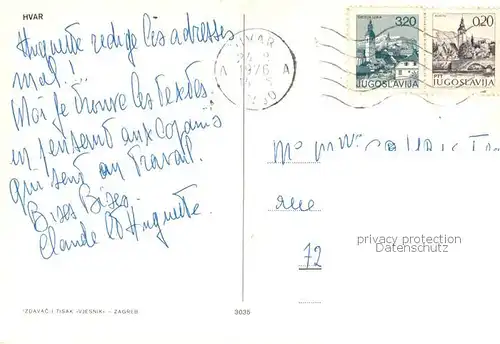 HVAR
Huguette rédige les adresses
moi!!
Moi je trouve les textes
en pensant aux copains
qui sont au travail.
Bises Bises.
Claude et Huguette.
HVAR
1976
A A
3.20
JUGOSLAVIJA
0.20
PTT
JUGOSLAVIJA
Mr Mme
rue
72
privacy protection
Datenschutz
IZDAVAČ I TISAK »VJESNIK« – ZAGREB
3035